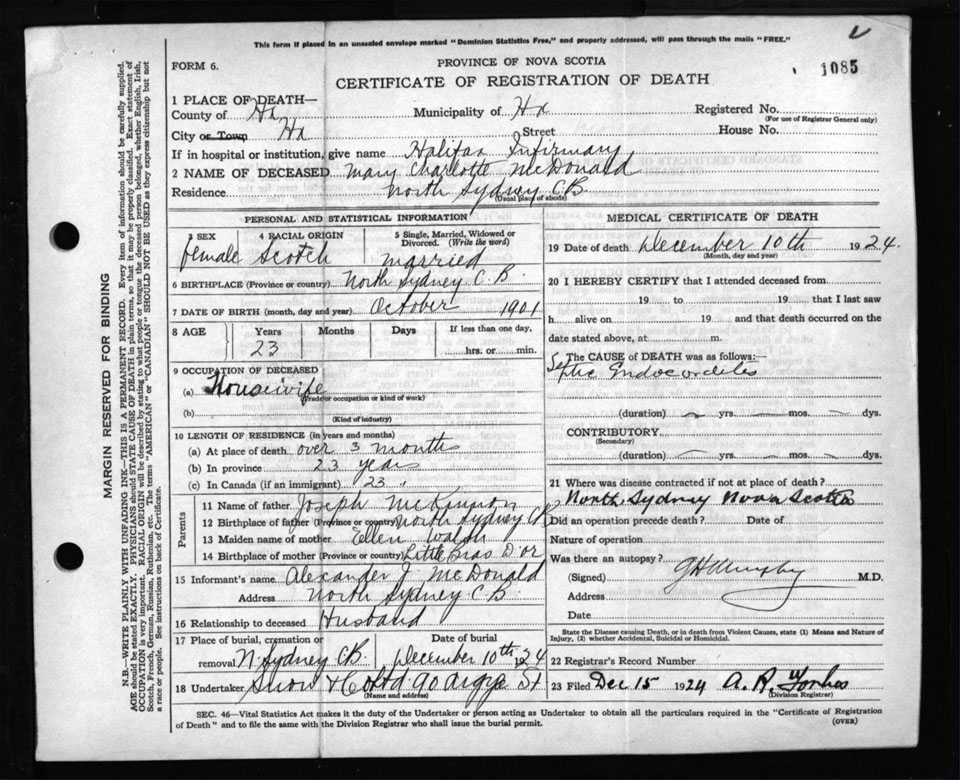 This form if placed in an unsealed envelope marked "Dominion Statistics Free," and properly addressed, will pass through the mails "FREE."
FORM 6.
PROVINCE OF NOVA SCOTIA
CERTIFICATE OF REGISTRATION OF DEATH
1085
1 PLACE OF DEATH—
County of Hx Municipality of Hx Registered No.
(For use of Registrar General only)
City or Town Hx Street House No.
If in hospital or institution, give name Halifax Infirmary
2 NAME OF DECEASED Mary Charlotte McDonald
Residence North Sydney CB
(Usual place of abode)
PERSONAL AND STATISTICAL INFORMATION
3 SEX 4 RACIAL ORIGIN 5 Single, Married, Widowed or Divorced. (Write the word)
female Scotch married
6 BIRTHPLACE (Province or country) North Sydney C.B.
7 DATE OF BIRTH (month, day and year) October 1901
8 AGE Years Months Days If less than one day,
23 hrs. or min.
9 OCCUPATION OF DECEASED
(a) Housewife
(Trade or occupation or kind of work)
(b)
(Kind of industry)
10 LENGTH OF RESIDENCE (in years and months)
(a) At place of death over 3 months
(b) In province 23 years
(c) In Canada (if an immigrant) 23 "
Parents
11 Name of father Joseph McKinnon
12 Birthplace of father (Province or country) North Sydney CB
13 Maiden name of mother Ellen Walsh
14 Birthplace of mother (Province or country) Little Bras D'or
15 Informant's name Alexander J. McDonald
Address North Sydney C.B.
16 Relationship to deceased Husband
17 Place of burial, cremation or removal N Sydney CB. Date of burial December 10th 1924
18 Undertaker Snow & Co Ltd 90 Argyle St
(Name and address)
MEDICAL CERTIFICATE OF DEATH
19 Date of death December 10th 1924.
(Month, day and year)
20 I HEREBY CERTIFY that I attended deceased from
19 to 19 that I last saw
h alive on 19 and that death occurred on the
date stated above, at m.
The CAUSE of DEATH was as follows:
Septic Endocordites
(duration) yrs. mos. dys.
CONTRIBUTORY
(Secondary)
(duration) yrs. mos. dys.
21 Where was disease contracted if not at place of death?
North Sydney Nova Scotia
Did an operation precede death? Date of
Nature of operation
Was there an autopsy?
(Signed) G H Murphy M.D.
Address
Date
State the Disease causing Death, or in death from Violent Causes, state (1) Means and Nature of Injury, (2) whether Accidental, Suicidal or Homicidal.
22 Registrar's Record Number
23 Filed Dec 15 1924 A. R.
(Division Registrar)
SEC. 46—Vital Statistics Act makes it the duty of the Undertaker or person acting as Undertaker to obtain all the particulars required in the "Certificate of Registration
of Death" and to file the same with the Division Registrar who shall issue the burial permit. (OVER)
MARGIN RESERVED FOR BINDING
N.B.—WRITE PLAINLY WITH UNFADING INK—THIS IS A PERMANENT RECORD. Every item of information should be carefully supplied.
AGE should be stated EXACTLY. PHYSICIANS should STATE CAUSE OF DEATH in plain terms, so that it may be properly classified. Exact statement of
OCCUPATION is very important. RACIAL ORIGIN will be described by stating to what people or tongue the deceased person belonged, whether English, Irish,
Scotch, French, German, Russian, Ruthenian, etc. The terms "AMERICAN" or "CANADIAN" SHOULD NOT BE USED as they express citizenship but not
a race or people. See instructions on back of Certificate.